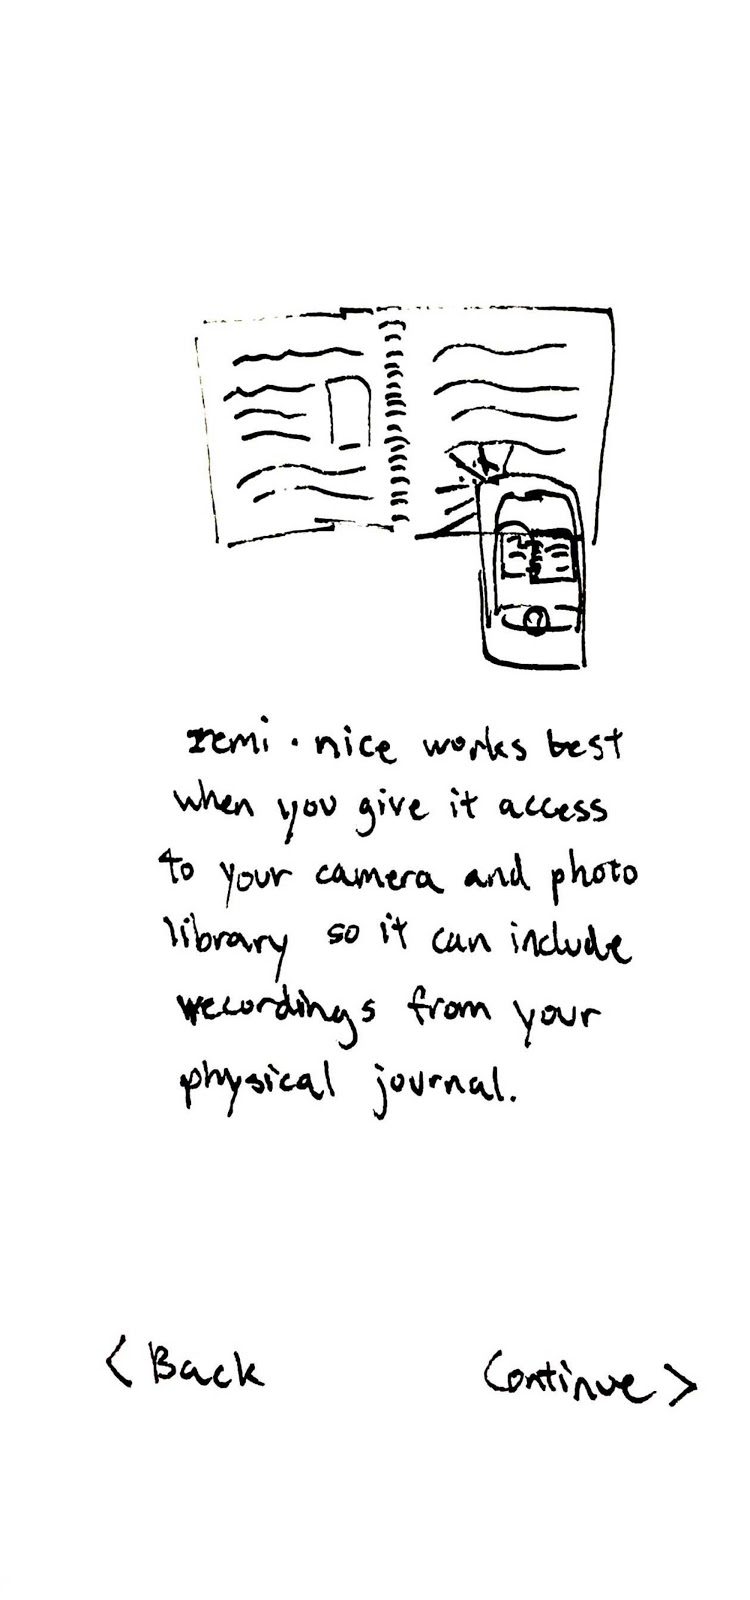 remi · nice works best
when you give it access
to your camera and photo
library so it can include
recordings from your
physical journal.
< Back
Continue >